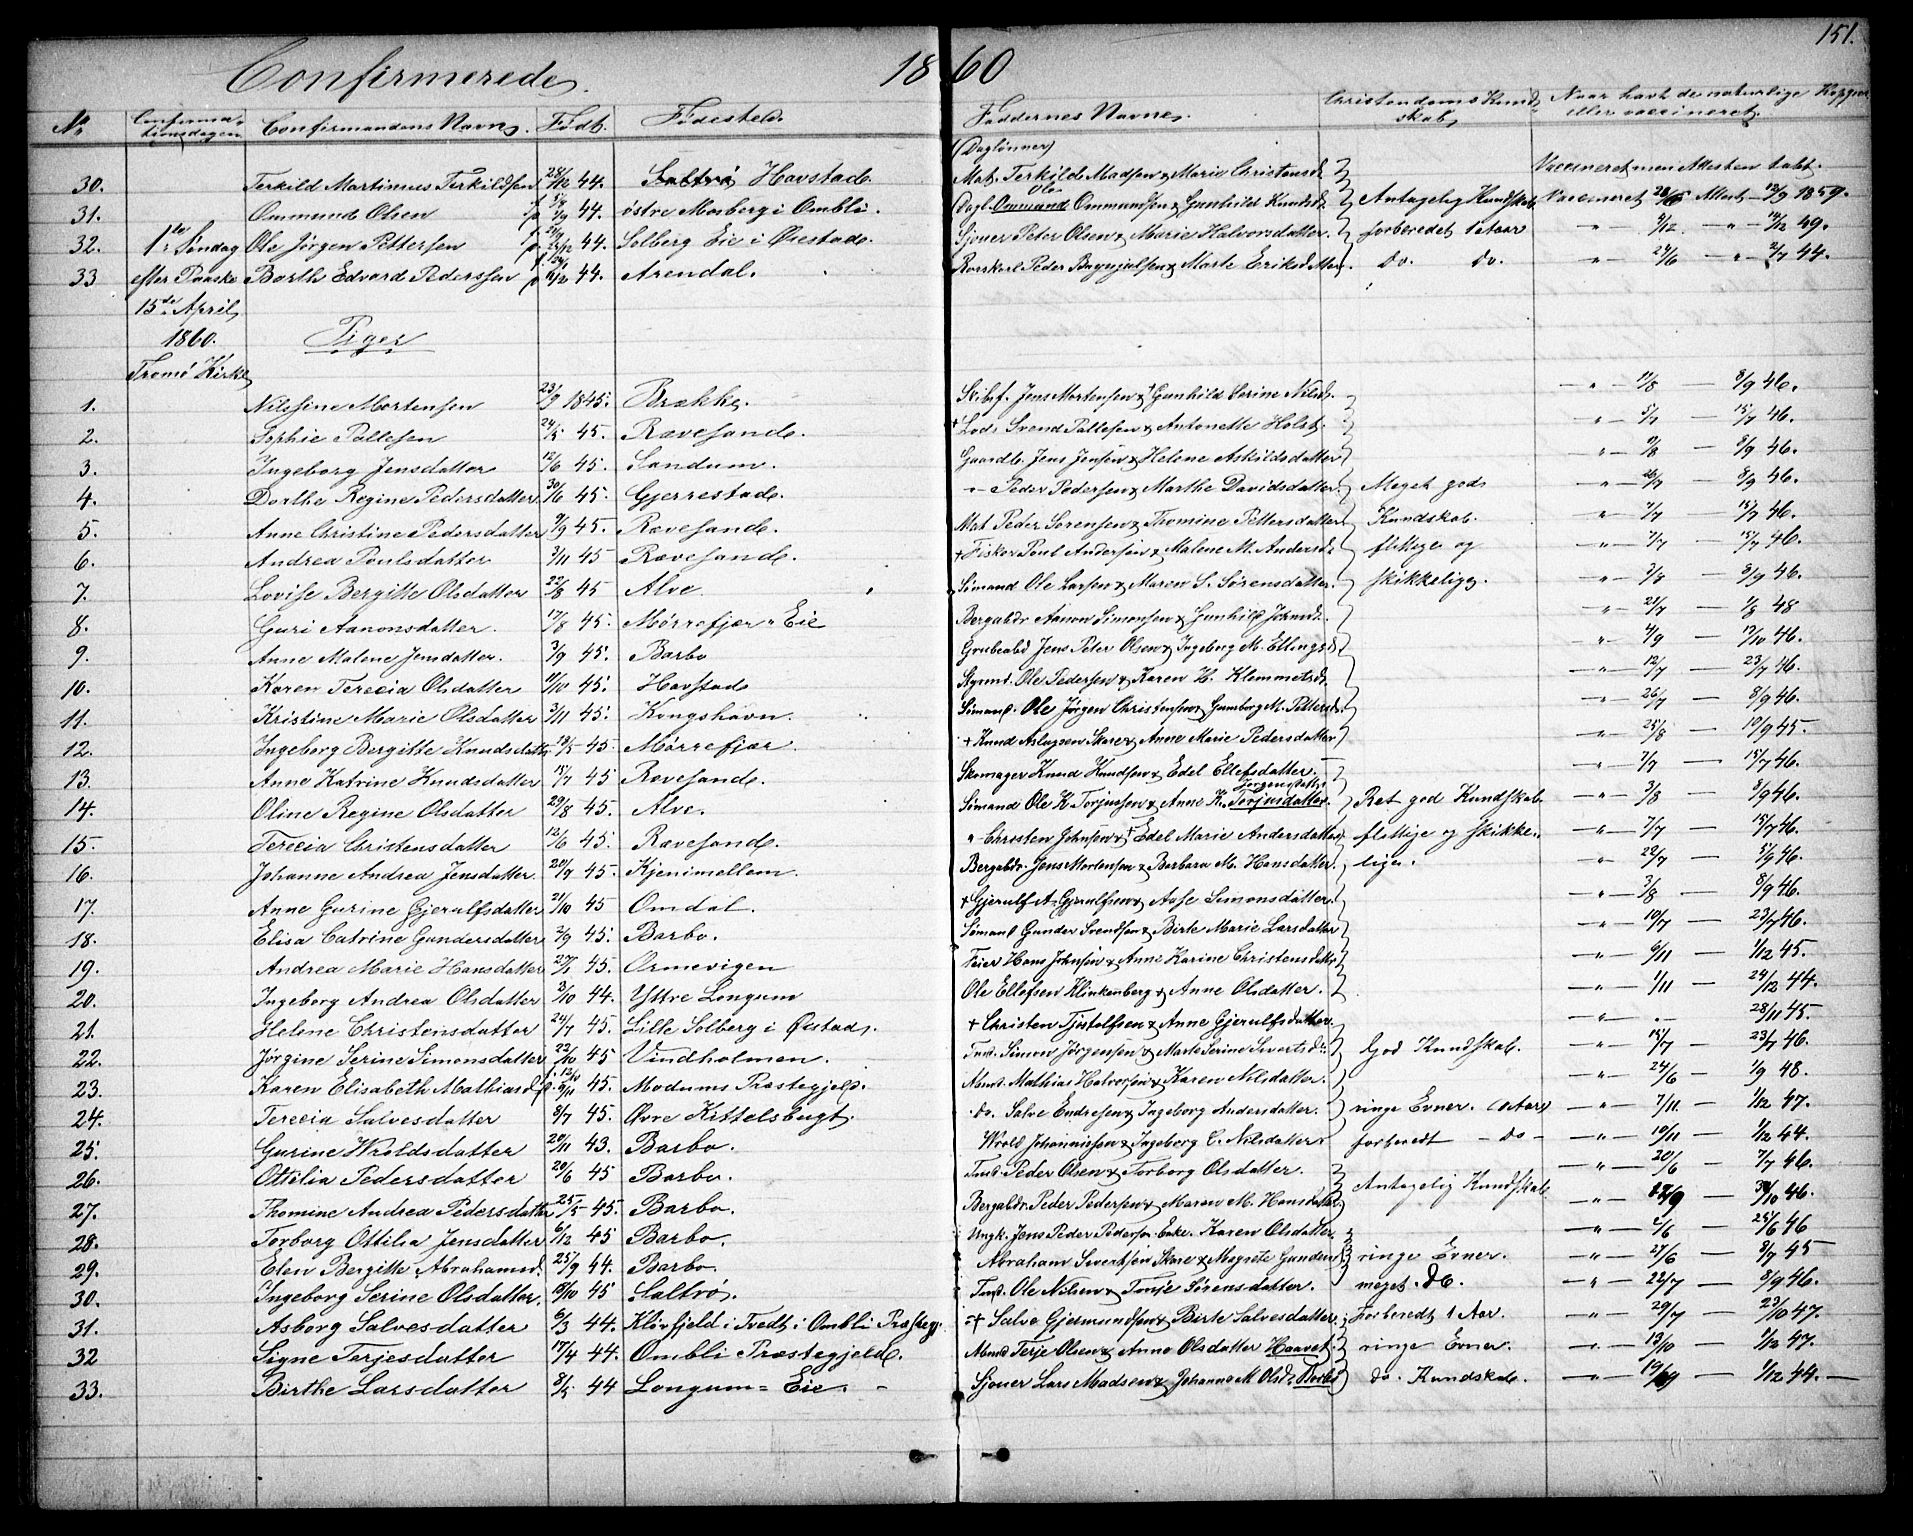 151.
Confirmerede 1860
No Confirmationsdagen Confirmandens Navn Født. Fødested Faddernes Navne. Christendoms Kundskab Naar havt de naturlige Kopper eller vaccineret.
(Daglønner)
30. Terkild Martinius Terkildsen 28/12 44. Saltrø Havstad. Mat. Terkild Madsen & Marie Christensd. Vaccineret men Attesten tabt.
31. Ommund Olsen 44. østre Mosberg i Ombli. Dagl. Ommund Ole Ommundsen & Gunhild Knudsd. Antagelig Kundskab Vaccineret Attest 12/9 1859.
32. 1ste Søndag Ole Jørgen Pettersen 44. Solberg Eie i Øiestad. Sjouer Peter Olsen & Marie Halvorsdatter. forberedet 1 Aar " 2/12 " 14/12 49.
33 efter Paaske Barth Edvard Pederssen 44. Arendal. Rorskarl Peder & Marte Eriksdatter. do. do. " 24/6 " 2/7 44.
15de April
1860. Piger
Tromø Kirke
1. Nilssine Mortensen 23/9 1845. Brække. Skibsf. Jens Mortensen & Gunhild Serine Nilsd. " 11/8 — 8/9 46.
2. Sophie Pallesen 24/5 45. Rævesand. + Lods Svend Pallesen & Antonette Holst. " 5/7 — 15/7 46.
3. Ingeborg Jensdatter 12/6 45. Sandum. Gaardb. Jens Jensen & Helene Askildsdatter " 9/8 — 8/9 46.
4. Dorthe Regine Pedersdatter 30/6 45. Gjerrestad. " Peder Pedersen & Marthe Davidsdatter. Meget god " 26/7 — 8/9 46.
5. Anne Christine Pedersdatter 9/9 45. Rævesand. Mat Peder Sørensen & Thomine Pettersdatter Kundskab. " 7/7 — 15/7 46.
6. Andrea Poulsdatter 3/11 45 Rævesand. + Fisker Poul Andersen & Malene M. Andersd. flittige og " 7/7 — 15/7 46.
7. Lovise Bergitte Olsdatter 22/8 45 Alve. Sømand Ole Larsen & Maren S. Sørensdatter. skikkelige. " 3/8 — 8/9 46.
8. Guri Aanonsdatter. 17/8 45. Mørrefjær Eie Bergarbdr Aanon Simonsen & Gunhild Johnsd. " 21/7 — 1/8 48
9. Anne Malene Jensdatter. 3/9 45. Barbo Grubearbd Jens Peter Olsen & Ingeborg M. Ellingsd. " 4/9 — 17/10 46.
10. Karen Terecia Olsdatter 11/10 45. Havstad Styrmd. Ole Pedersen & Karen H. Klemmetsd. " 12/7 — 23/7 46.
11. Kristine Marie Olsdatter 3/11 45. Kongshavn. Sømand. Ole Jørgen Christensen & Gunborg M. Pettersd. " 26/7 — 8/9 46.
12. Ingeborg Bergitte Knudsdatter 13/5 45. Mørrefjær. + Knud Aslagsen Skare & Anne Marie Pedersdatter " 25/8 — 10/9 45.
13. Anne Katrine Knudsdatter 15/7 45 Rævesand. Skomager Knud Knudsen & Edel Ellefsdatter. " 7/7 — 15/7 46.
14. Oline Regine Olsdatter 29/8 45. Alve. Sømand Ole K Torjussen & Anne K. Torjusdatter. Jørgensdatter Ret god Kundskab " 3/8 — 8/9 46.
15. Terecia Christensdatter 12/6 45. Rævesand. " Christen Johnsen & + Edel Marie Andersdatter flittige og skikke- " 7/7 — 15/7 46.
16. Johanne Andrea Jensdatter 20/7 45. Kjenimellem. Bergabdr. Jens Mortensen & Barbara M. Hansdatter. lige. " 22/7 — 5/9 46.
17. Anne Gurine Gjerulfsdatter 21/10 45 Omdal. + Gjerulf A. Gjerulfsen & Aase Simonsdatter. " 3/8 — 8/9 46.
18. Elisa Catrine Gundersdatter 2/9 45. Barbo. Sømand Gunder Svendsen & Birte Marie Larsdatter " 10/7 — 23/7 46.
19. Andrea Marie Hansdatter 45. Ormevigen Feier Hans Johnsen & Anne Karine Christensdatter " 6/11 — 1/12 45.
20. Ingeborg Andrea Olsdatter 3/10 44. Yttre Longum Ole Ellefsen Klinkenberg & Anne Olsdatter. " 1/11 — 24/12 44.
21. Helene Christensdatter 24/7 45. Lille Solberg i Øiestad. + Christen Tjostolfsen & Anne Gjerulfsdatter. " — 28/11 45.
22. Jørgine Serine Simonsdatter 22/10 45 Vindholmen. Inds. Simon Jørgensen & Marte Serine Sivertsd. God Kundskab. " 15/7 — 23/7 46.
23. Karen Elisabeth Mathiasd. 45. Modums Præstegjeld. Mathias Halvorsen & Karen Nilsdatter. " 24/6 — 1/9 48.
24. Terecia Salvesdatter 8/7 45. Øvre Kittelsbugt. do. Salve Endresen & Ingeborg Andersdatter. ringe Evner. 1 Aar " 7/11 — 1/12 47.
25. Gurine Wroldsdatter 20/11 43. Barbo. Wrold Johannissen & Ingeborg C. Nilsdatter. forberedt — do — " 19/11 — 1/12 44.
26. Ottilia Pedersdatter 20/6 45 Barbo. Inds. Peder Olsen & Torborg Olsdatter. " 20/6 — 7/7 46.
27. Thomine Andrea Pedersdatter 25/5 45. Barbo. Bergabdr. Peder Pedersen & Maren M. Hansdatter. Antagelig Kundskab " — 46.
28. Torborg Ottilia Jensdatter 6/12 45 Barbo. Ungk. Jens Peder Pedersen Enke. Karen Olsdatter. " 2/6 — 25/6 46
29. Elen Bergitte Abrahamsd. 25/9 44. Barbo. Abraham Sivertsen Skare & Magrete Gundersd. ringe Evner. " 27/6 — 8/7 45
30. Ingeborg Serine Olsdatter. 8/10 45 Saltrø. Inds. Ole Nilsen & Tonje Sørensdatter. meget. do. " 22/7 — 8/9 46.
31. Asborg Salvesdatter 6/3 44. Klivfjeld i Tvedt i Ombli Præstegj. + Salve Gjermundsen & Birte Salvesdatter. forberedt 1 Aar. " 29/7 — 23/10 47.
32 Signe Terjesdatter 17/4 44. Ombli Præstegjeld. Terje Olsen & Anne Olsdatter Haavet. ringe Evner. " 13/10 — 1/12 47.
33. Birthe Larsdatter 8/5 44 Longum = Eie. Sjouer Lars Madsen & Johanne M. Olsd. Barbo do. Kundskab. " — 1/12 44.